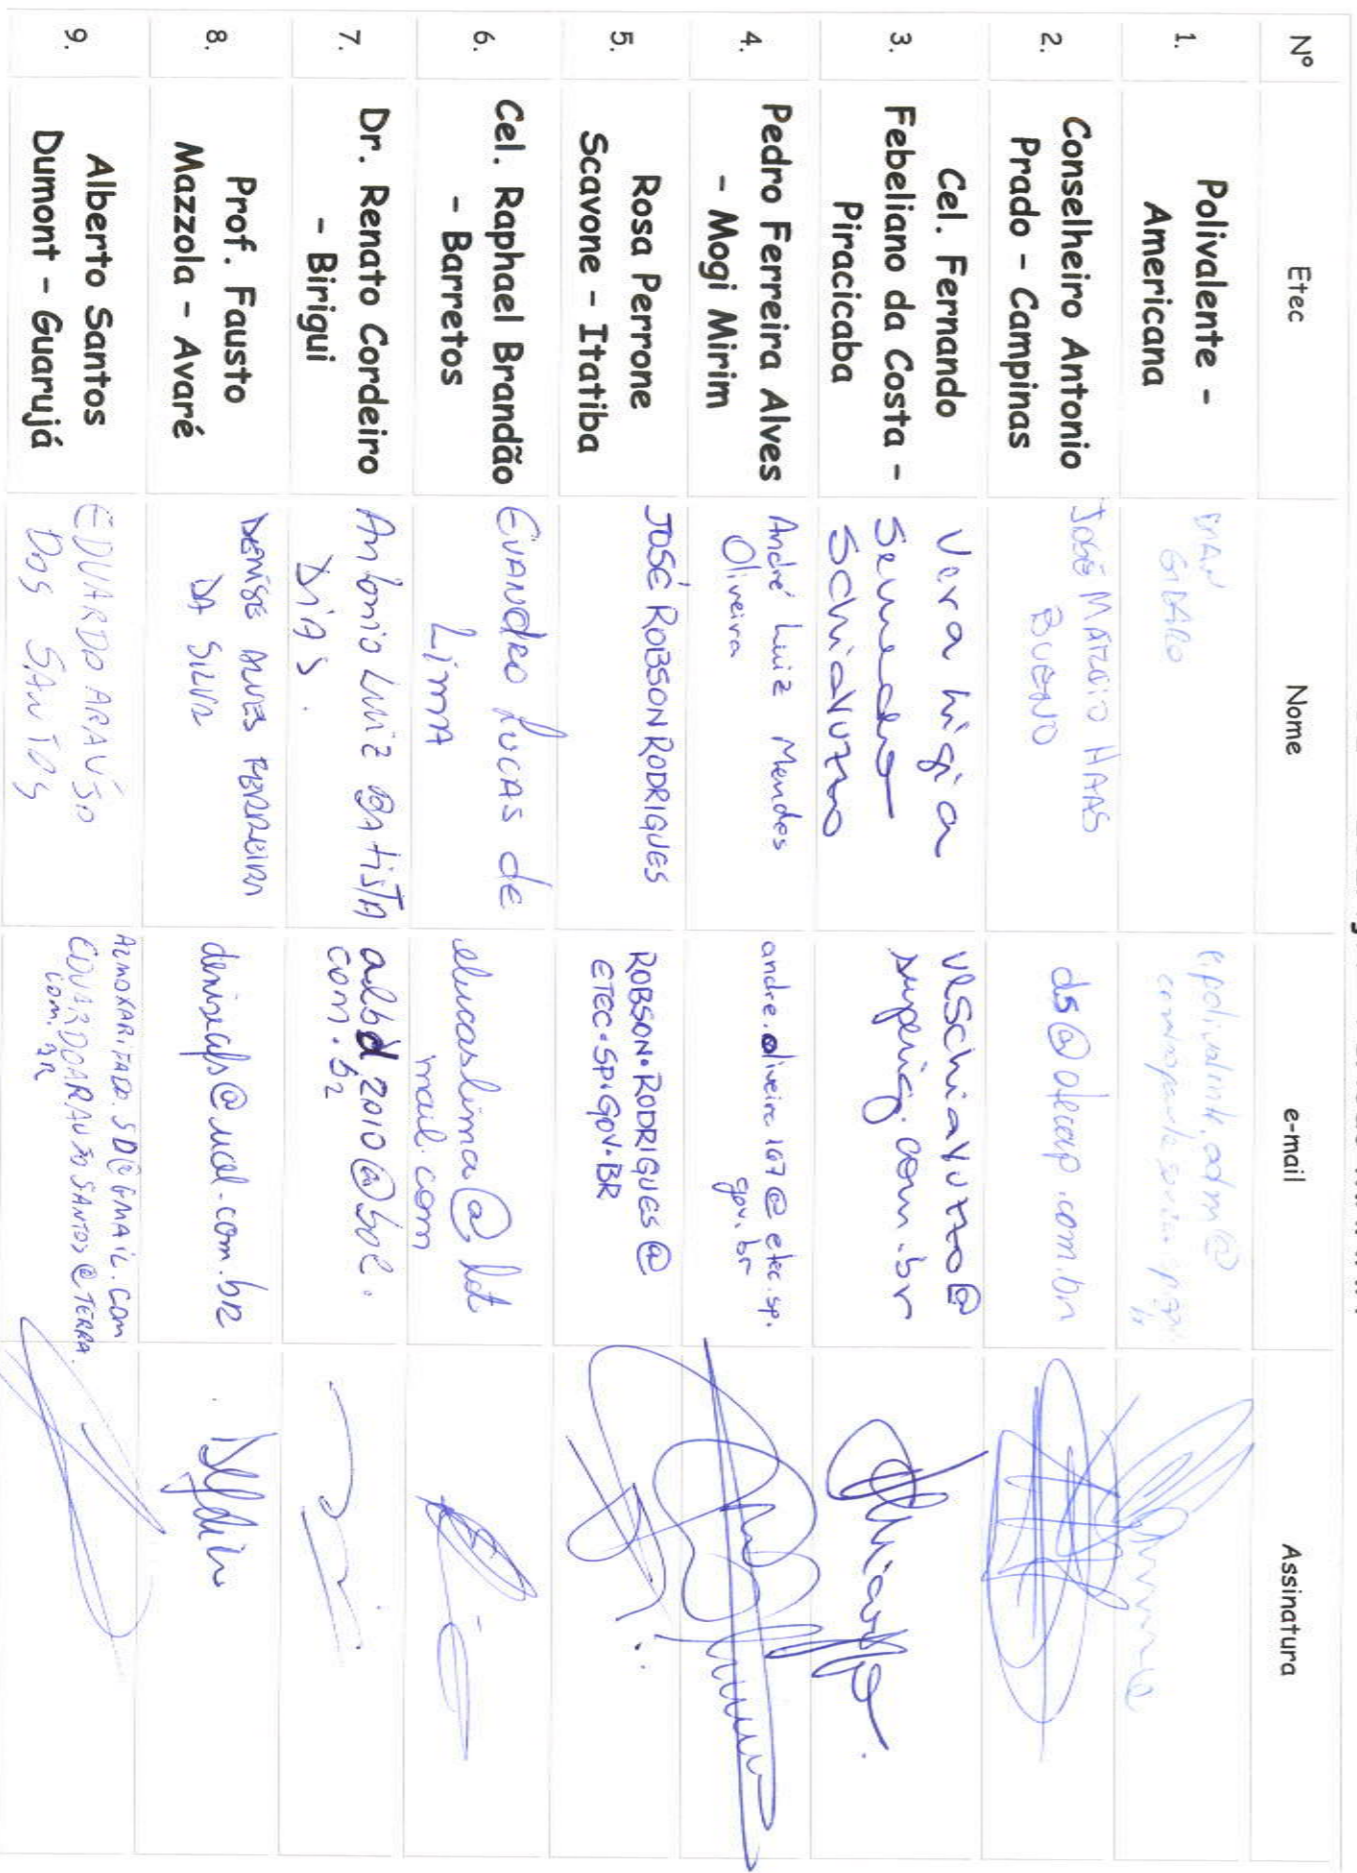 Nº Etec Nome e-mail Assinatura
1. Polivalente -
Americana
2. Conselheiro Antonio
Prado - Campinas
JOSÉ MARCIO HAAS
BUENO
3. Cel. Fernando
Febeliano da Costa -
Piracicaba
Vera Ligia
Schiavuzzo
vlschiavuzzo@
superig.com.br
4. Pedro Ferreira Alves
- Mogi Mirim
André Luiz Mendes
Oliveira
andre.oliveira167@etec.sp.
gov.br
5. Rosa Perrone
Scavone - Itatiba
JOSÉ ROBSON RODRIGUES
ROBSON.RODRIGUES@
ETEC.SP.GOV.BR
6. Cel. Raphael Brandão
- Barretos
EVANDRO LUCAS de
LIMA
elucaslima@hot
mail.com
7. Dr. Renato Cordeiro
- Birigui
Antonio Luiz BATISTA
DIAS.
albd2010@bol.
com.br
8. Prof. Fausto
Mazzola - Avaré
DENISE ALVES FERREIRA
DA SILVA
deniseafs@uol.com.br
9. Alberto Santos
Dumont - Guarujá
EDUARDO ARAÚJO
DOS SANTOS
ALMOXARIFADO.SD@GMAIL.COM
EDUARDOARAUJOSANTOS@TERRA.
COM.BR